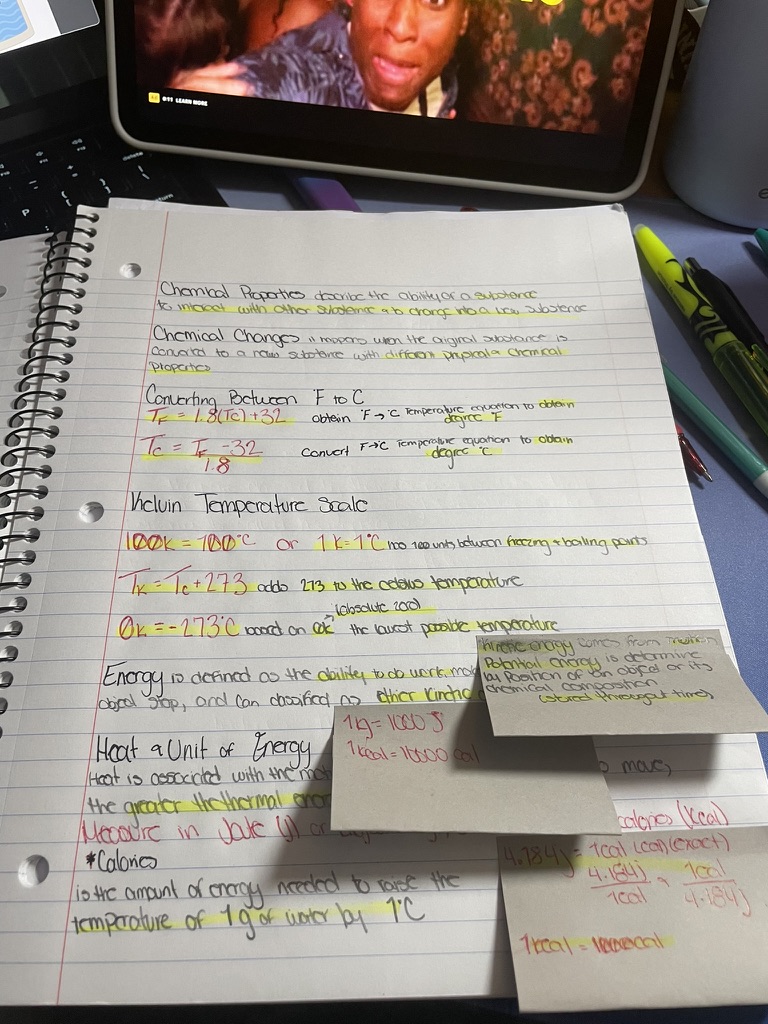 LEARN MORE
Chemical Properties describe the ability of a substance
to interact with other substance & to change into a new substance
Chemical Changes it happens when the original substance is
converted to a new substance with different physical & chemical
properties
Converting Between °F to °C
TF = 1.8(Tc) + 32 obtain °F→°C Temperature equation to obtain
degree °F
Tc = TF - 32 convert F→°C Temperature equation to obtain
1.8 degree °C
Kelvin Temperature Scale
100K = 100°C or 1K = 1°C 100 units between freezing + boiling points
TK = Tc + 273 adds 273 to the celsius temperature
(absolute zero)
0K = -273°C based on 0K the lowest possible temperature
Energy is defined as the ability to do work,
object stop, and can classified as either kinetic
Kinetic energy comes from
Potential energy is determine
by Position of an object or its
chemical composition
(stored throughout time)
Heat a Unit of Energy
Heat is associated with the
move,
the greater the thermal
Measure in Joule (J) or
calories (Kcal)
1kg = 1000 J
1kcal = 10000 cal
*Calories
is the amount of energy needed to raise the
temperature of 1g of water by 1°C
4.184J = 1cal (cal) (exact)
4.184J 1cal
1cal 4.184J
1kcal = 1000cal